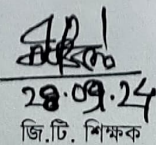 28.09.24
জি.টি. শিক্ষক